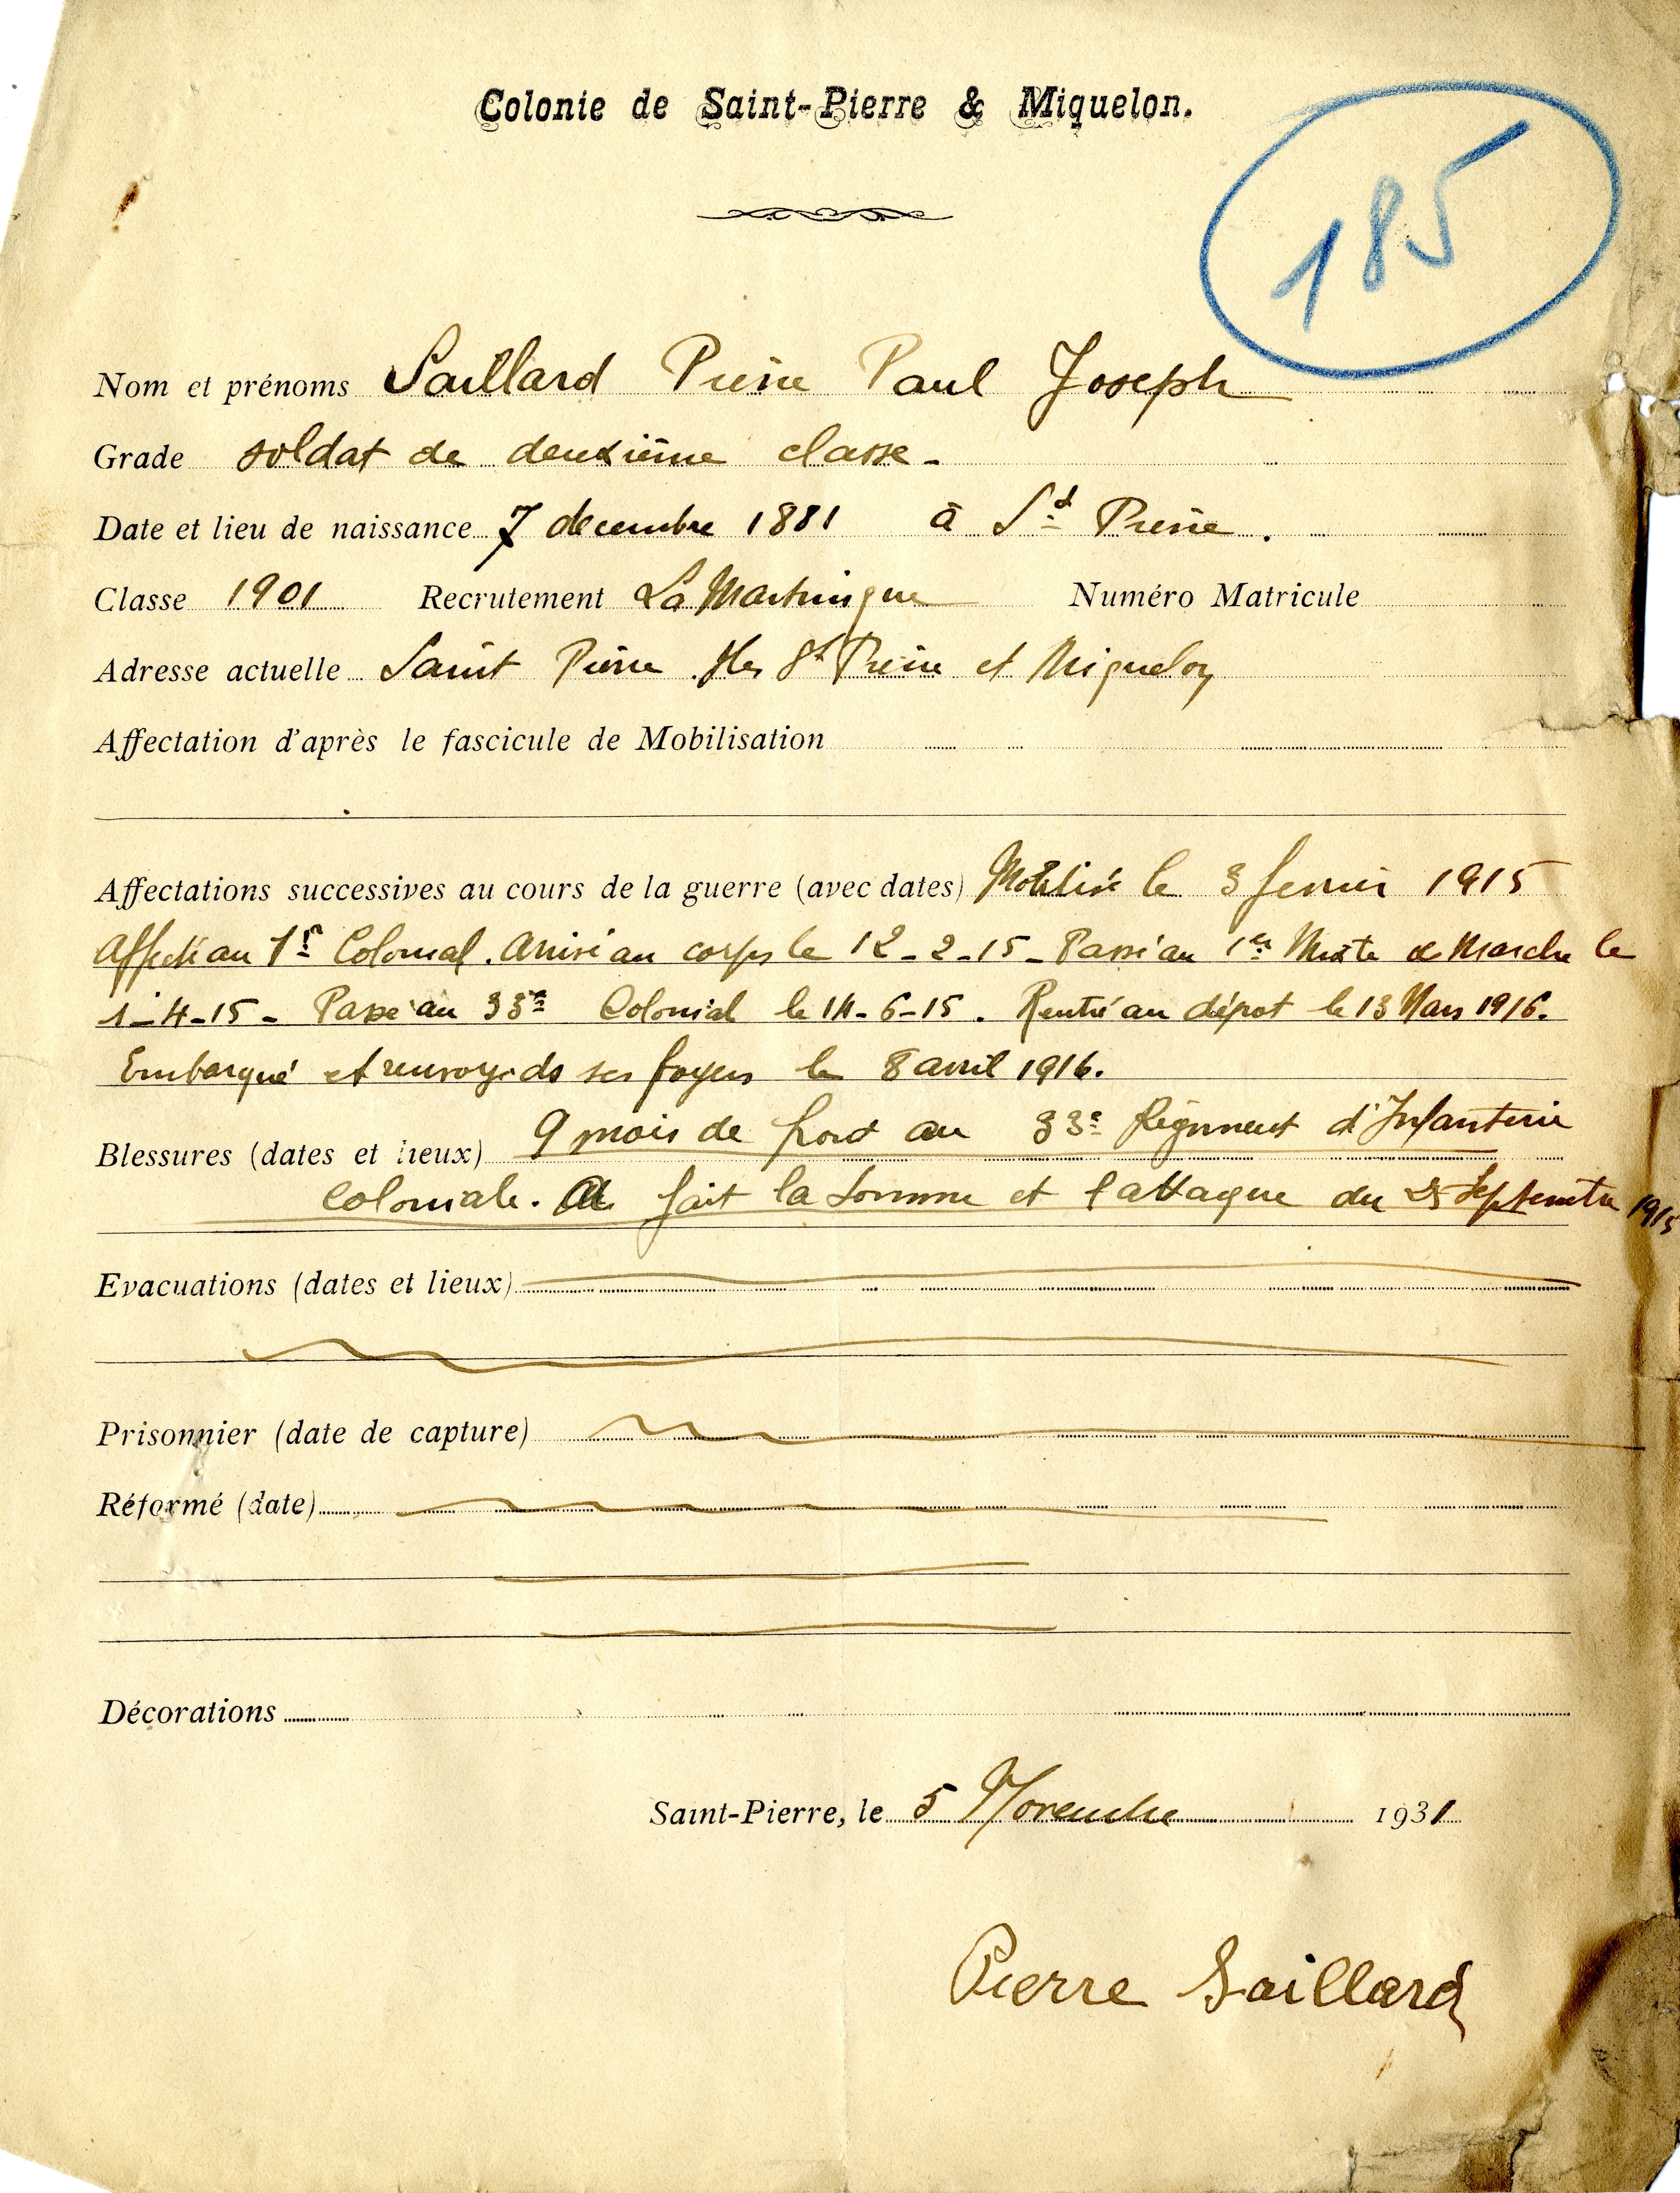 Colonie de Saint-Pierre & Miquelon.
185
Nom et prénoms Saillard Pierre Paul Joseph
Grade soldat de deuxième classe -
Date et lieu de naissance 7 decembre 1881 à St Pierre.
Classe 1901 Recrutement La Martinique Numéro Matricule
Adresse actuelle Saint Pierre Iles St Pierre et Miquelon
Affectation d'après le fascicule de Mobilisation
Affectations successives au cours de la guerre (avec dates) Mobilisé le 3 fevrier 1915
Affecté au 1er Colonial. Arrivé au corps le 12-2-15 - Passé au 1er Mixte de Marche le
1-4-15 - Passé au 33e Colonial le 14-6-15. Rentré au dépot le 13 Mars 1916.
Embarqué et renvoyé ds ses foyers le 8 avril 1916.
Blessures (dates et lieux) 9 mois de front au 33e Régiment d'Infanterie
Coloniale. A fait la Somme et l'attaque du 25 Septembre 1915
Evacuations (dates et lieux)
Prisonnier (date de capture)
Réformé (date)
Décorations
Saint-Pierre, le 5 Novembre 1931
Pierre Saillard